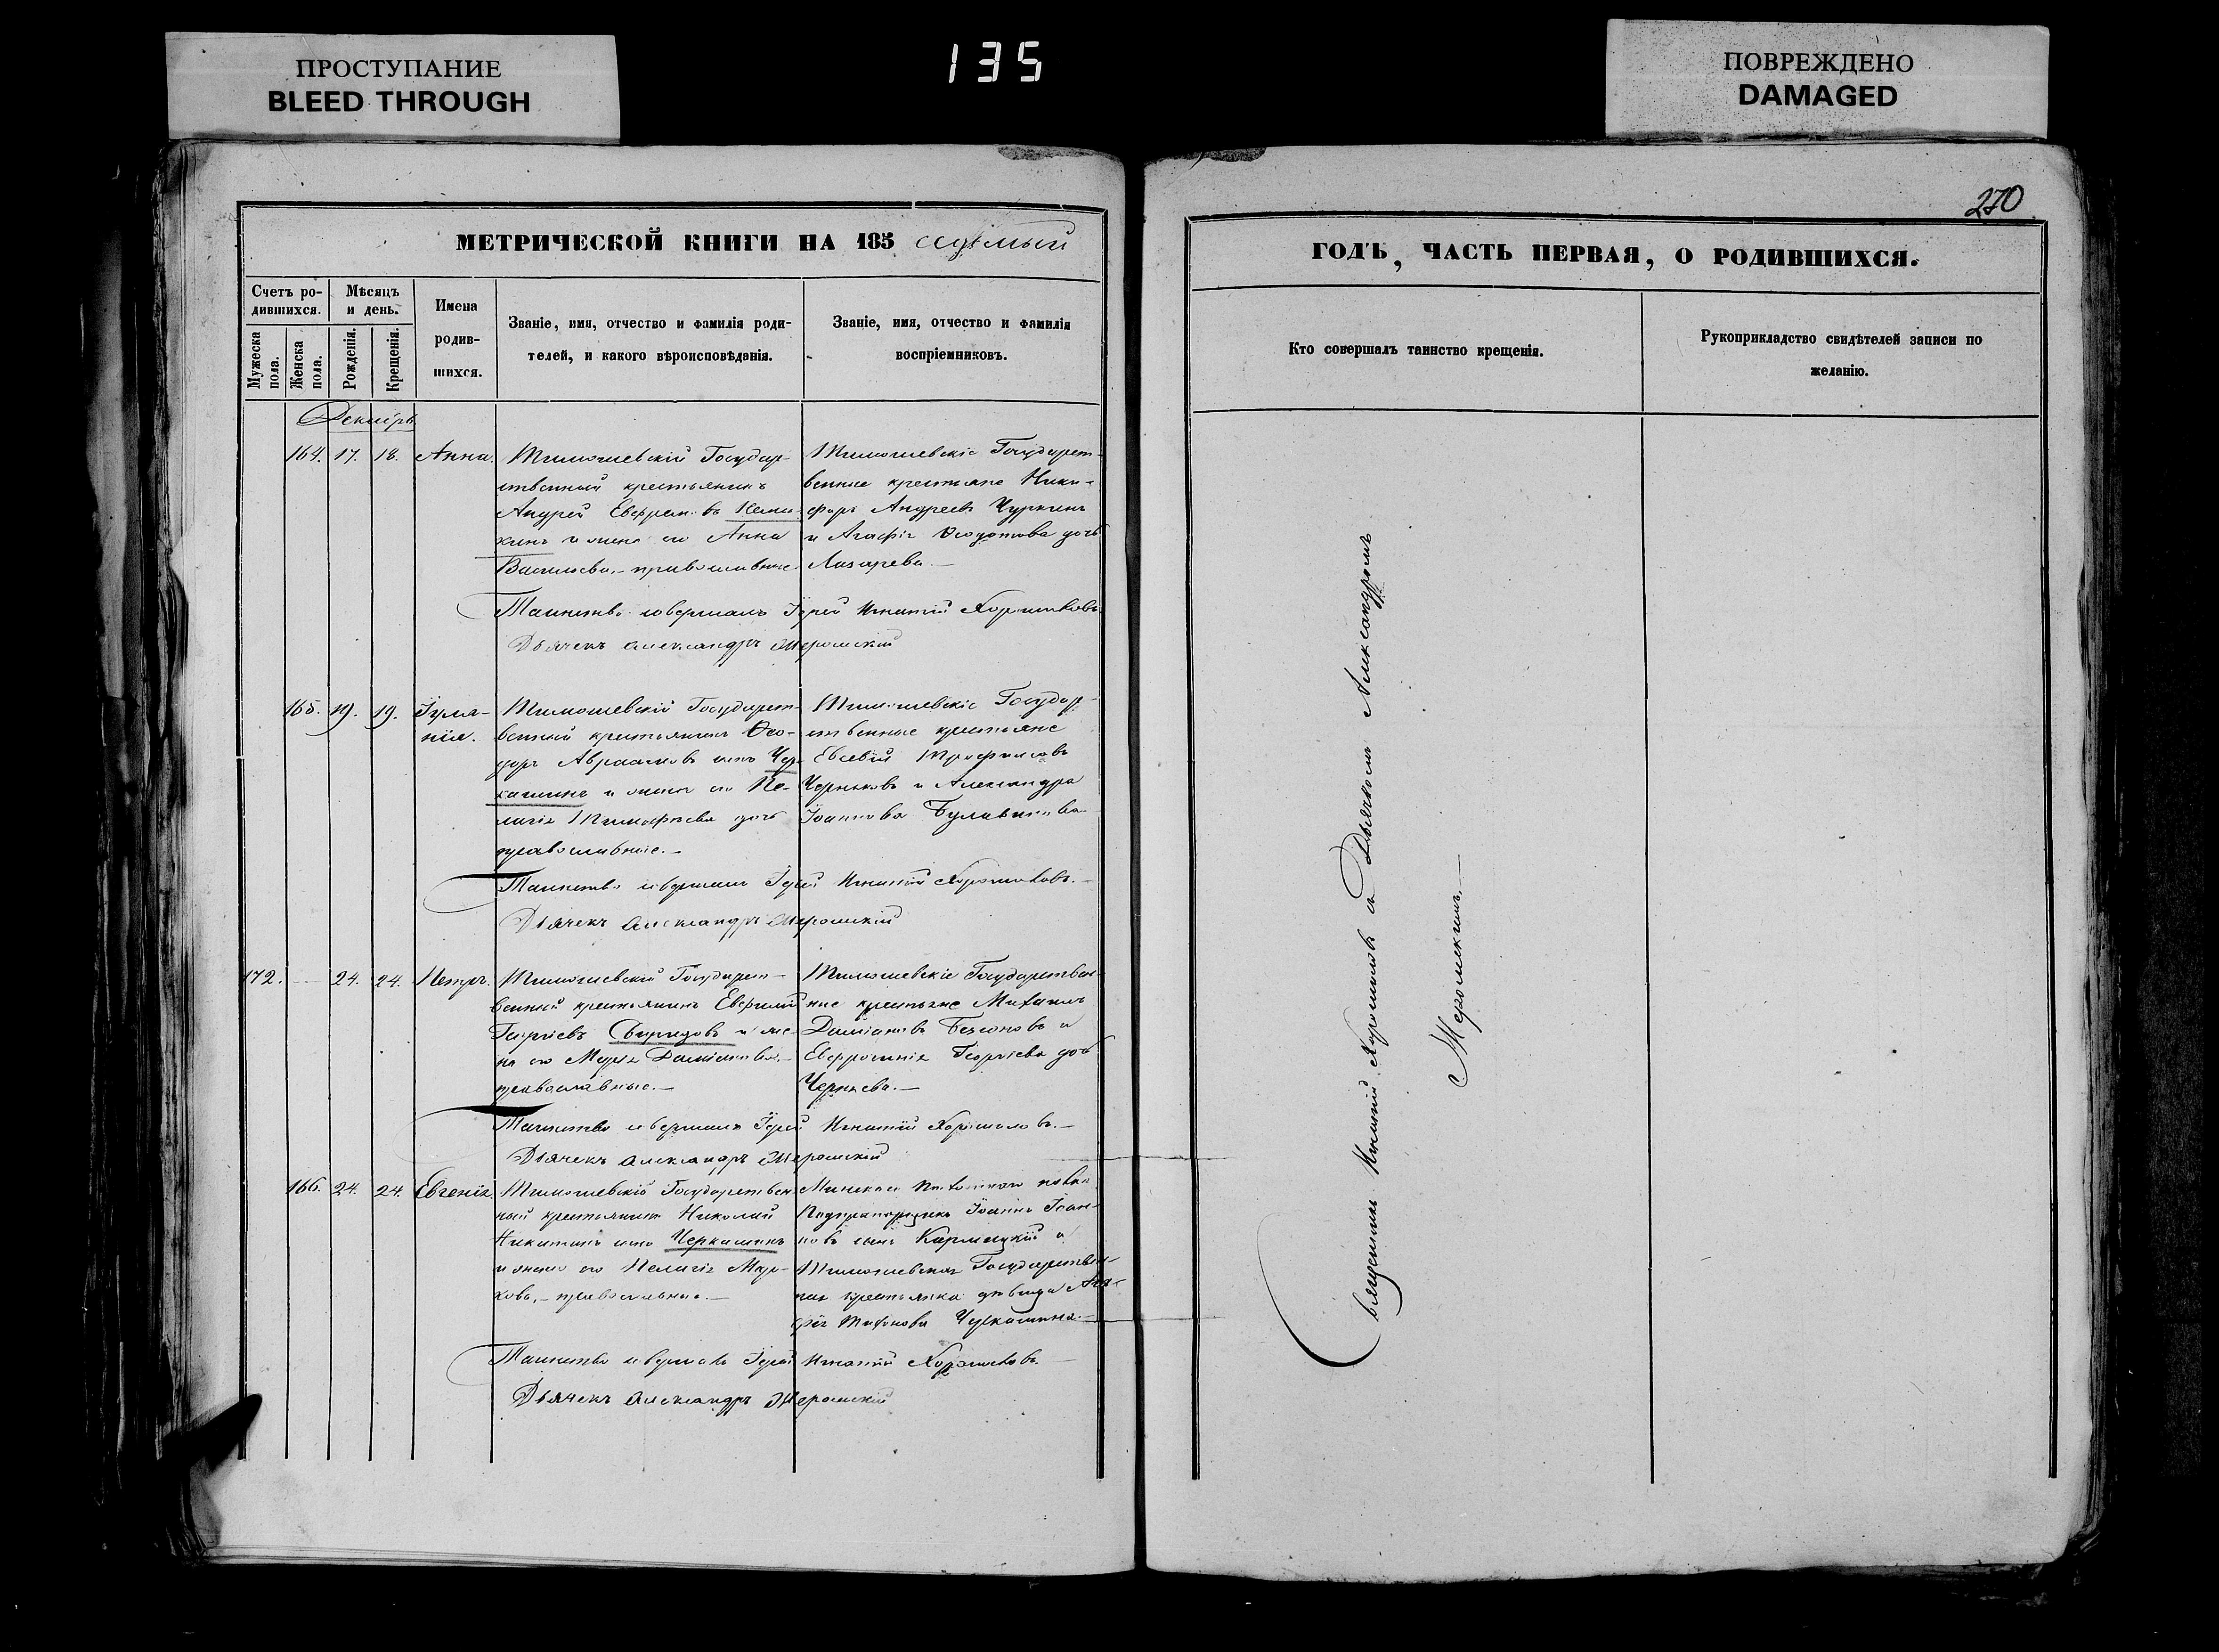 ПРОСТУПАНИЕ
BLEED THROUGH
135
ПОВРЕЖДЕНО
DAMAGED
270
МЕТРИЧЕСКОЙ КНИГИ НА 185 седмый
ГОДЪ, ЧАСТЬ ПЕРВАЯ, О РОДИВШИХСЯ.
Счетъ ро-
дившихся.
Мужеска
пола.
Женска
пола.
Мѣсяцъ
и день.
Рожденія.
Крещенія.
Имена
родив-
шихся.
Званіе, имя, отчество и фамилія роди-
телей, и какого вѣроисповѣданія.
Званіе, имя, отчество и фамилія
воспріемниковъ.
Кто совершалъ таинство крещенія.
Рукоприкладство свидѣтелей записи по
желанію.
Декабрь
164. 17. 18. Анна.
Тимошевскій Государ-
ственный крестьянинъ
Андрей
и жена его Анна
Васильева, - православные.
Тимошевскіе Государст-
венные крестьяне Ники-
форъ Андреевъ Чуркинъ
и Агафія Ѳеодотова дочь
Лазарева. -
Таинство совершалъ Іерей Игнатій Хорошиловъ.
Дьячекъ Александръ Жеромскій
165. 19. 19. Іулі-
нія.
Тимошевскій Государст-
венный крестьянинъ Ѳео-
доръ Авраамовъ сынъ Чер-
кашинъ и жена его Пе-
лагія Тимофѣева дочь
православные. -
Тимошевскіе Государ-
ственные крестьяне
Евсевій Трофимовъ
Черныковъ и Александра
Іоаннова
Таинство совершалъ Іерей Игнатій Хорошиловъ. -
Дьячекъ Александръ Жеромскій
172. 24. 24. Петръ.
Тимошевскій Государст-
венный крестьянинъ Евфимій
Георгіевъ и же-
на его Марія Даміанова, -
православные. -
Тимошевскіе Государствен-
ные крестьяне Михаилъ
Даміановъ и
Евфросинія Георгіева дочь
Таинство совершалъ Іерей Игнатій Хорошиловъ. -
Дьячекъ Александръ Жеромскій
166. 24. 24. Евгенія.
Тимошевскій Государствен-
ный крестьянинъ Николай
Никитинъ сынъ Черкашинъ
и жена его Пелагія Мар-
кова, - православные. -
Минскаго Пѣхотнаго полка
Подпрапорщикъ Іоаннъ Іоан-
новъ сынъ и
Тимошевская Государствен-
ная крестьянка дѣвица Ага-
фія Тихонова Черкашина. -
Таинство совершалъ Іерей Игнатій Хорошиловъ. -
Дьячекъ Александръ Жеромскій
Священникъ Игнатій Хорошиловъ съ Дьячкомъ Александромъ
Жеромскимъ. -